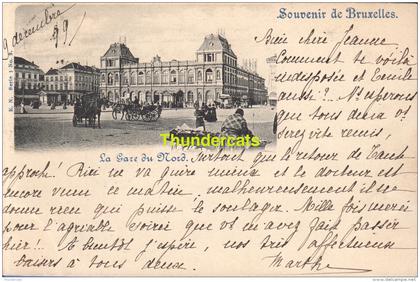 Souvenir de Bruxelles.
9 décembre 99.
E. N. Serie 1 No. 8.
Bien chère Jeanne,
Comment te voilà
indisposée et Emile
aussi? N'espérons
que tous deux v.
serez vite remis,
Thundercats
La Gare du Nord.
Surtout que le retour de Tante
approche! Rien ne va guère mieux et le docteur est
encore venu ce matin, malheureusement il ne
donne rien qui puisse le soulager. Mille fois merci
pour l'agréable soirée que vs m'avez fait passer
hier! A bientôt j'espère, nos très affectueux
baisers à tous deux.
Marthe